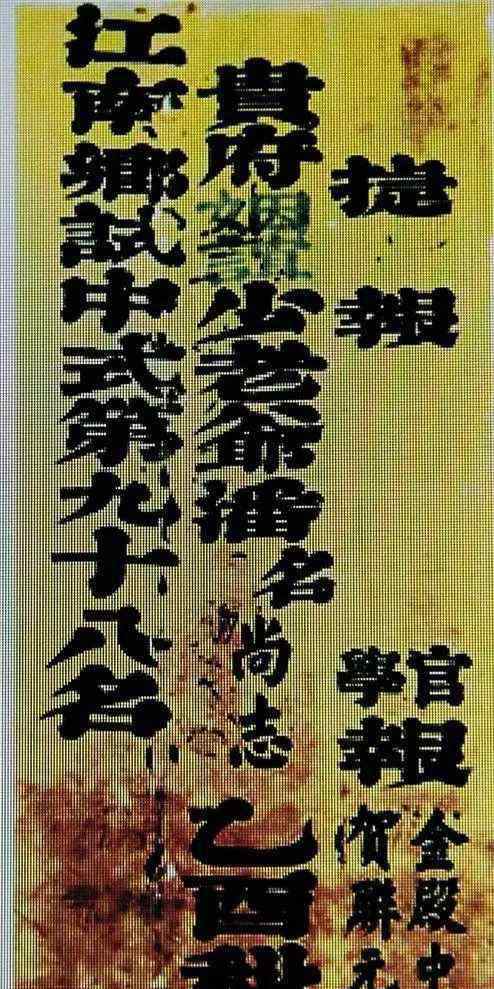 捷報
官寧報
金殿中
賀聯元
貴府姻誼少老爺潘名尚志 乙酉科
江南鄉試中式第九十八名